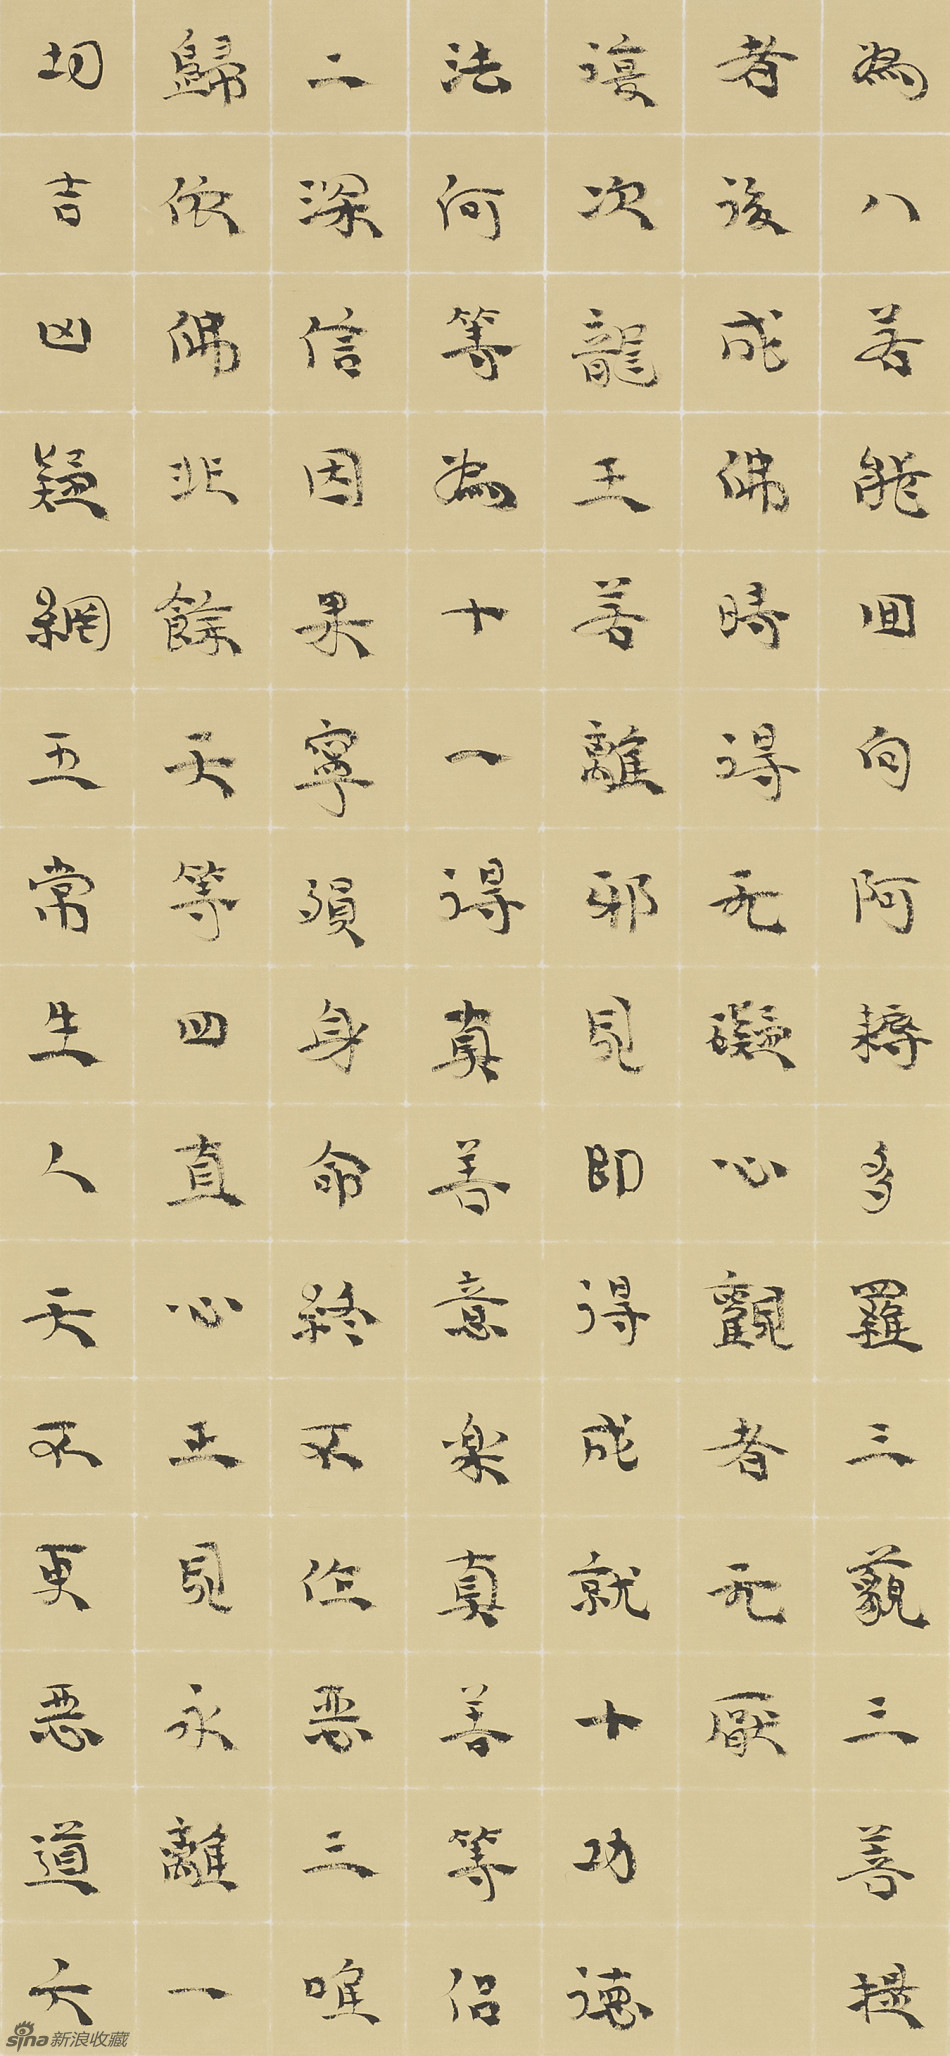 為八若能回向阿耨多羅三藐三菩提
者後成佛時得无礙心觀者无厭
復次龍王若離邪見即得成就十功德
法何等為十一得真善意楽真善等侣
二深信因果寧殞身命終不作惡三唯
歸依佛非餘天等四直心正見永離一
切吉凶疑網五常生人天不更惡道六
sina新浪收藏